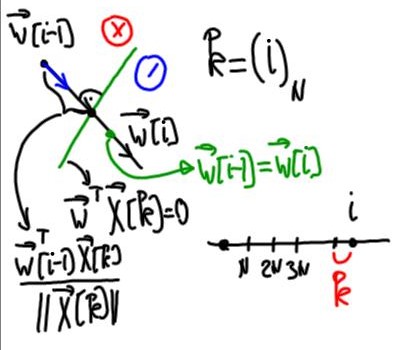 w⃗[i-1]
x
k = (i)_N
w⃗[i]
w⃗[i-1]=w⃗[i]
w⃗ᵀ x⃗[k]=0
w⃗ᵀ[i-1] x⃗[k]
||x⃗[k]||
i
N 2N 3N
k